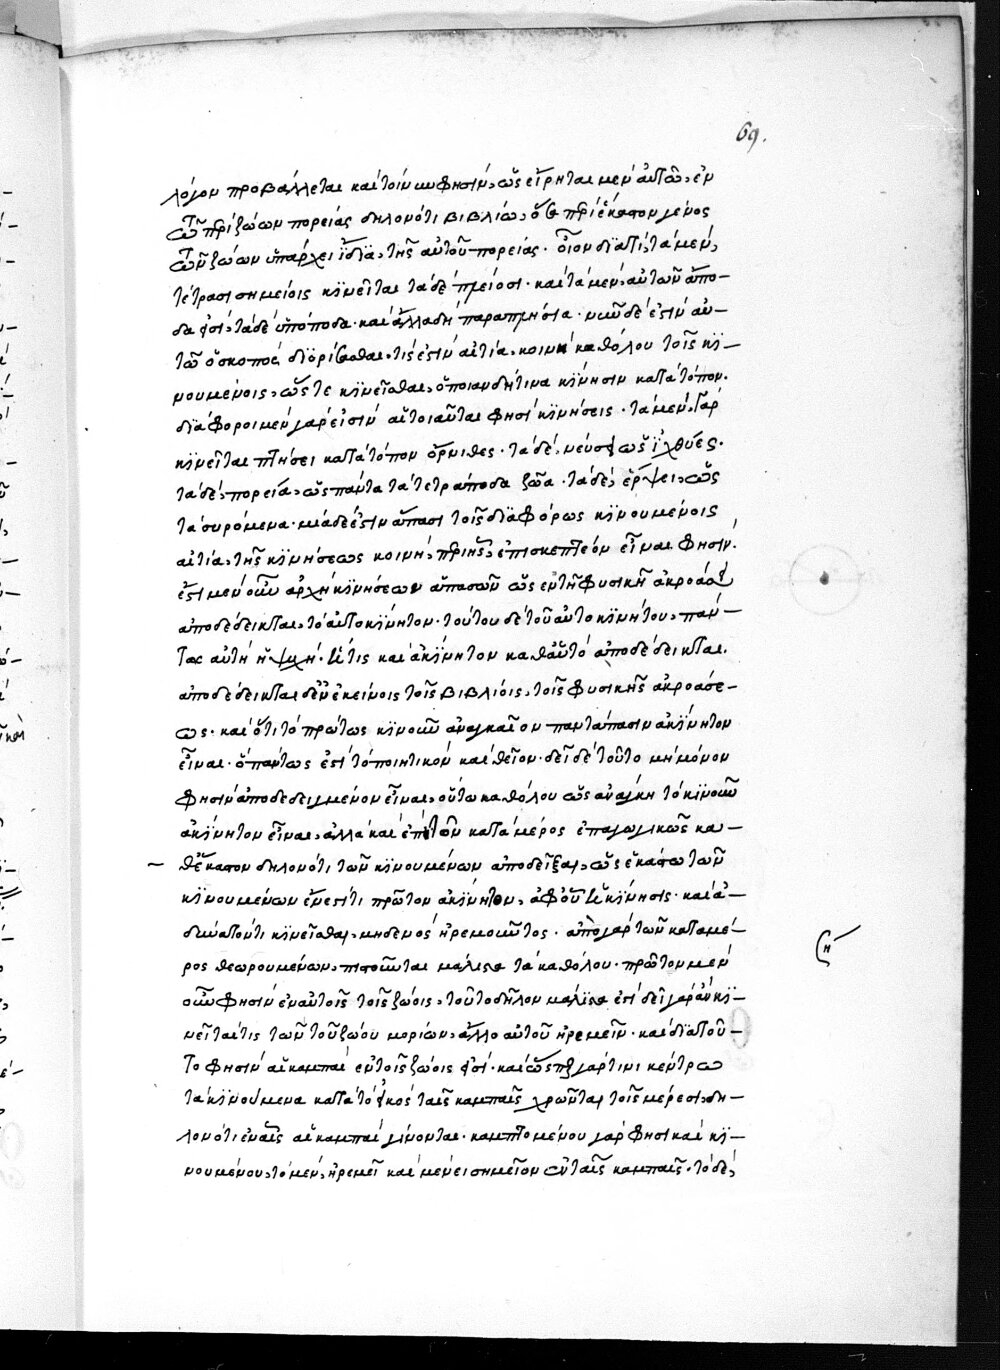 69.
λόγον προβάλλεται καὶ τοίνυν φησὶν, ὡς εἴρηται μὲν αὐτῶ, ἐν
τῶ περὶ ζώων πορείας δηλονότι βιβλίω, ὅσα περὶ ἕκαστον γένος
τῶν ζώων ὑπάρχει ἴδια, τῆς αὐτοῦ πορείας. οἷον διατί, τὰ μὲν,
τέτρασι σημείοις κινεῖται τὰ δὲ πλείοσι. καὶ τὰ μὲν, αὐτῶν ἄπο-
δα ἐστί, τὰ δὲ ὑπόποδα. καὶ ἄλλα δὴ παραπλήσια. νῦν δέ ἐστιν αὐ-
τῶ ὁ σκοπὸς διορίσασθαι, τίς ἐστὶν αἰτία, κοινὴ καθόλου τοῖς κι-
νουμένοις, ὥστε κινεῖσθαι, ὁποιανδήτινα κίνησιν κατὰ τόπον.
διάφοροι μὲν γάρ εἰσὶν αἱ τοιαῦται φησὶ κινήσεις. τὰ μὲν, γὰρ
κινεῖται πτήσει κατὰ τόπον ὄρνιθες. τὰ δὲ, νεύσει ὡς ἰχθύες.
τὰ δὲ, πορεία, ὡς πάντα τὰ τετράποδα ζῶα. τὰ δὲ, ἕρψει, ὡς
τὰ συρόμενα. μία δέ ἐστιν ἅπασι τοῖς διαφόρως κινουμένοις
αἰτία, τῆς κινήσεως κοινὴ, περὶ ἧς, ἐπισκεπτέον εἶναι φησίν.
ἔστι μὲν οὖν ἀρχὴ κινήσεων ἁπασῶν ὡς ἐν τῆ φυσικῆ ἀκροάσει
ἀποδέδεικται, τὸ αὐτοκίνητον. τούτου δὲ τοῦ αὐτοκινήτου, πάν-
τως αὐτὴ ἡ ψυχή. ἥτις καὶ ἀκίνητον καθ' αὑτὸ ἀποδέδεικται.
ἀποδέδεικται δ' ἐν ἐκείνοις τοῖς βιβλίοις, τοῖς φυσικῆς ἀκροάσε-
ως. καὶ ὅτι τὸ πρώτως κινοῦν ἀναγκαῖον παντάπασιν ἀκίνητον
εἶναι. ὃ πάντως ἐστὶ τὸ ποιητικὸν καὶ θεῖον. δεῖ δὲ τοῦτο μὴ μόνον
φησὶν ἀποδεδειγμένον εἶναι, οὕτω καθόλου ὡς ἀνάγκη τὸ κινοῦν
ἀκίνητον εἶναι, ἀλλὰ καὶ ἐπὶ τῶν κατὰ μέρος ἐπαγωγικῶς κα-
θέκαστον δηλονότι τῶν κινουμένων ἀποδεῖξαι, ὡς ἑκάστω τῶν
κινουμένων ἔνεστί τι πρῶτον ἀκίνητον, ἀφ' οὗ ἡ κίνησις. καὶ ἀ-
δύνατόν τι κινεῖσθαι, μηδενὸς ἠρεμοῦντος. ἀπὸ γὰρ τῶν κατὰ μέ-
ρος θεωρουμένων, πιστοῦται μάλιστα τὰ καθόλου. πρῶτον μὲν
οὖν φησὶν ἐν αὐτοῖς τοῖς ζώοις, τοῦτο δῆλον μάλιστα ἐστί δεῖ γὰρ ἂν κι-
νεῖταί τις τῶν τοῦ ζώου μορίων, ἄλλο αὐτοῦ ἠρεμεῖν. καὶ διὰ τοῦ-
το φησὶν αἱ καμπαὶ ἐν τοῖς ζώοις εἰσί. καὶ ὥσπερ γάρ τινι κέντρω
τὰ κινούμενα κατὰ τὸ εἰκὸς ταῖς καμπαῖς χρῶνται τοῖς μέρεσι, δη-
λονότι ἐν αἷς αἱ καμπαὶ γίνονται. καμπτομένου γάρ φησι καὶ κι-
νουμένου, τὸ μὲν, ἠρεμεῖ καὶ μένει σημεῖον ἐν ταῖς καμπαῖς. τὸ δὲ,